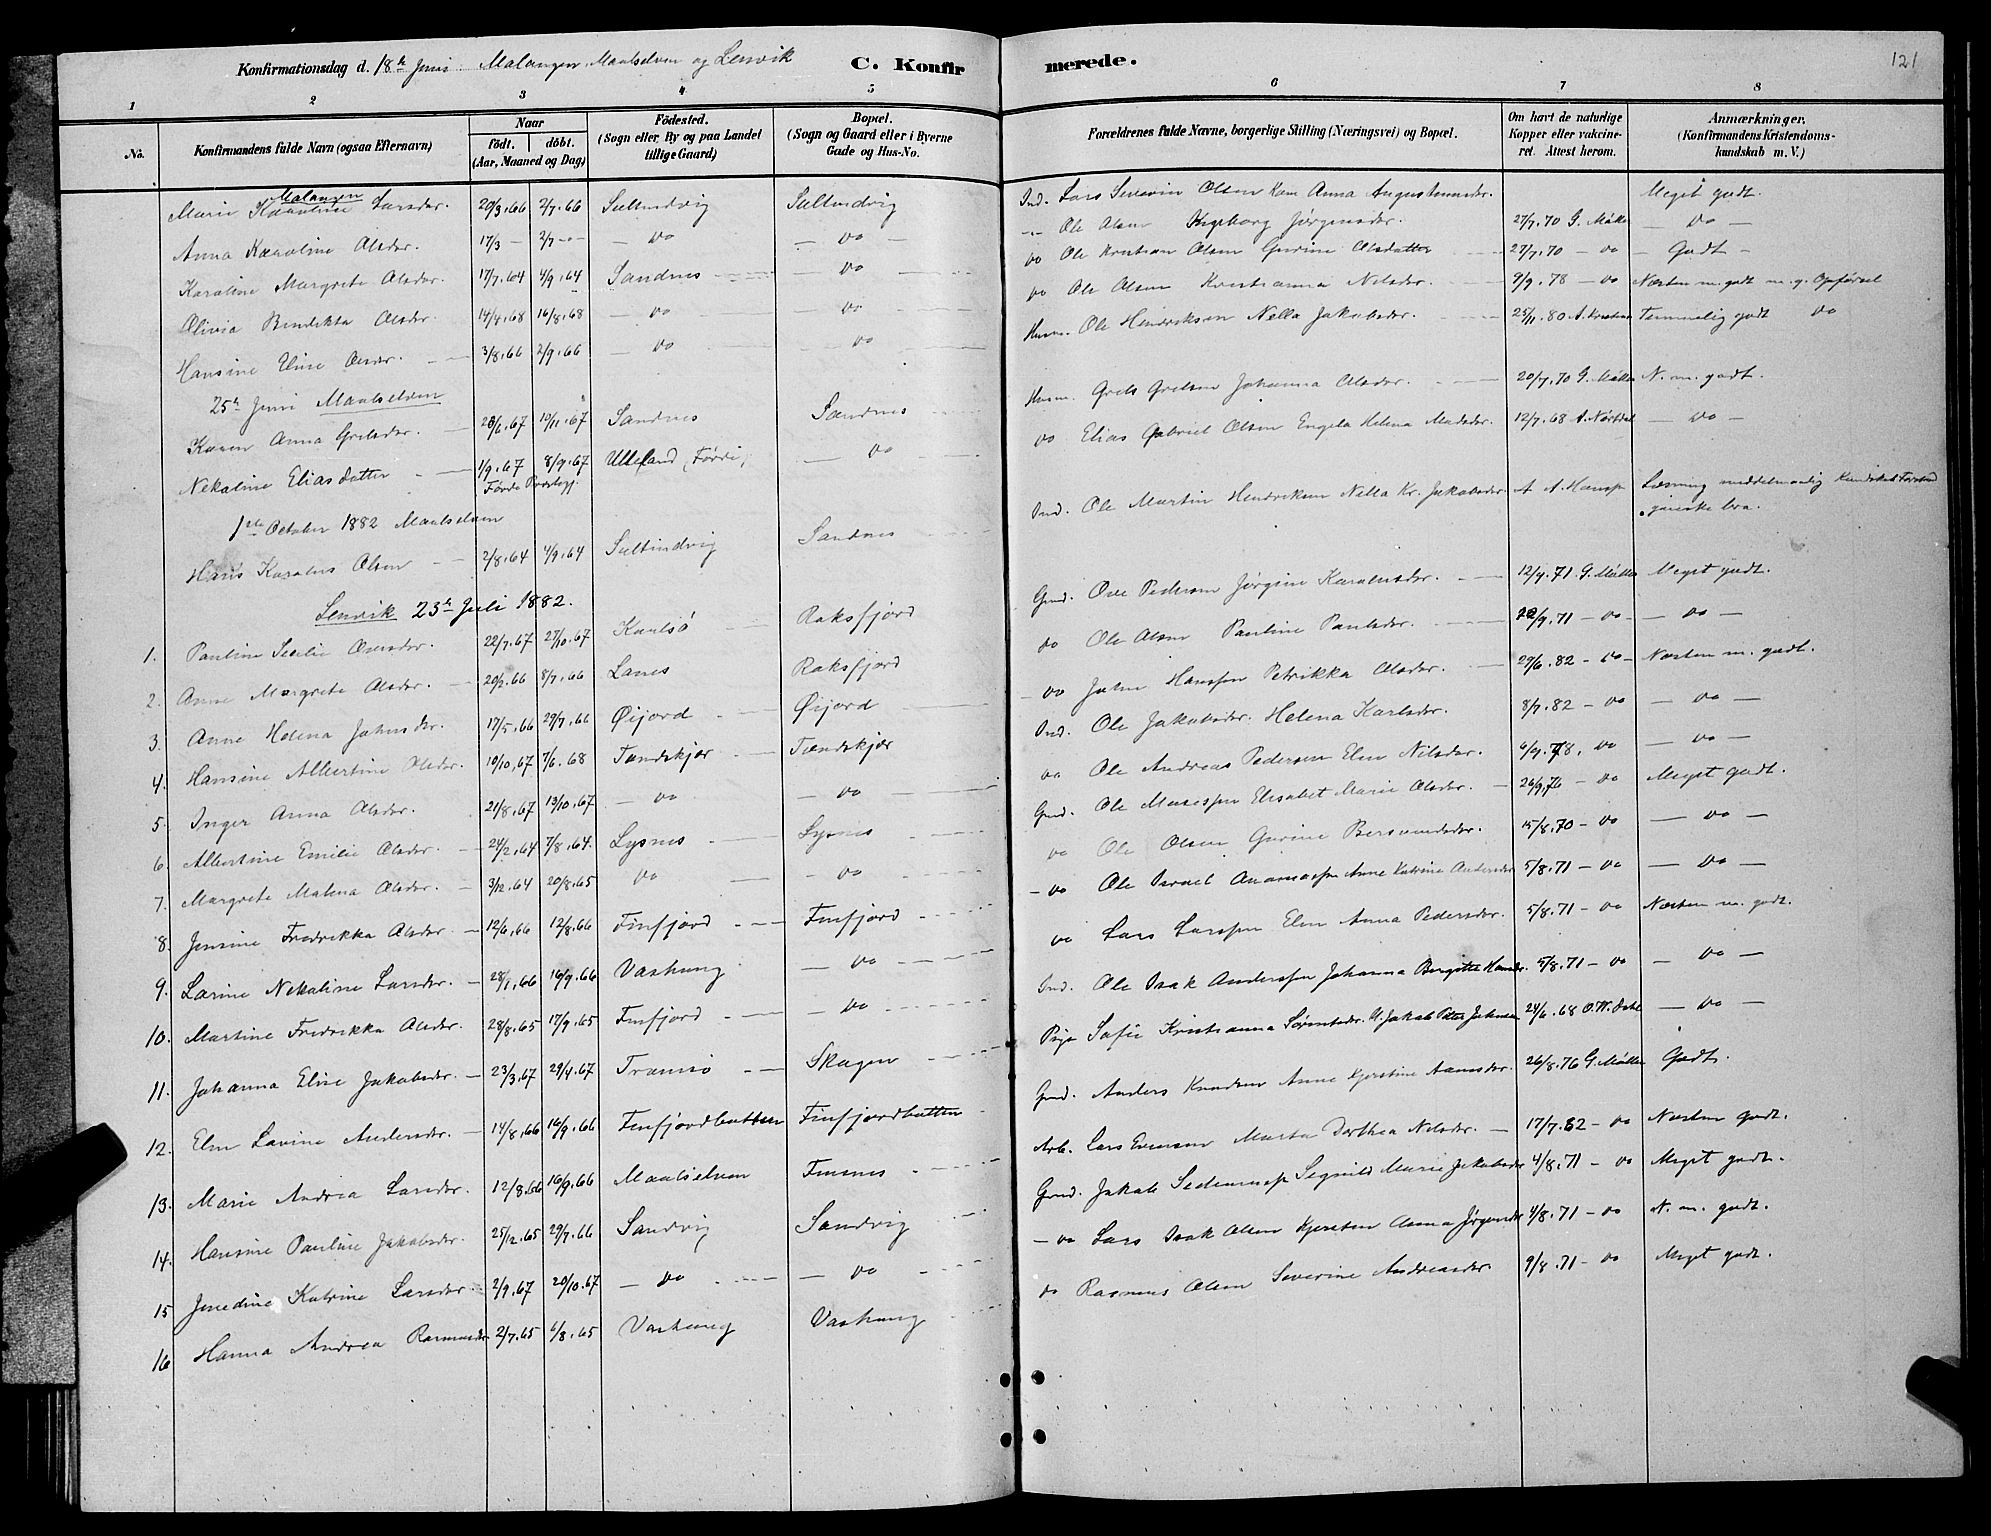 Konfirmationsdag d. 18de Juni Malangen, Maalselven og Lenvik C. Konfirmerede. 121
1 2 3 4 5 6 7 8
No. Konfirmandens fulde Navn (ogsaa Efternavn) Naar födt. döbt. (Aar, Maaned og Dag) Födested. (Sogn eller By og paa Landet tillige Gaard) Bopæl. (Sogn og Gaard eller i Byerne Gade og Hus-No. Forældrenes fulde Navne, borgerlige Stilling (Næringsvei) og Bopæl. Om havt de naturlige Kopper eller vakcineret. Attest herom. Anmærkninger. (Konfirmandens Kristendomskundskab m. V.)
Malangen
Marie Karoline Larsdr. 20/3.66 2/7.66 Sultindvig Sultindvig Ind. Lars Severin Olsen Anna Augustinusdr. Meget godt.
Anna Karoline Olsdr. 17/3 - 2/7 - - do - - do - Ole Olsen Ingeborg Jørgensdr. 27/7.70 G. Møller - do -
Karoline Margrete Olsdr. 17/7.64 4/9.64 Sandnes - do do Ole Kristian Olsen Gurine Olsdatter 27/7.70 - do - Godt -
Olivia Bendikta Olsdr. 14/4.68 16/8.68 - do - do do Ole Olsen Kristianna Nilsdr. 9/9.78 - do Næsten m. godt m. g. Opførsel
Hansine Elise Olsdr. 3/8.66 2/9.66 - do - do Husm. Ole Hendriksen Nella Jakobsdr. 25/11.80 A. Temmelig godt do
25de Juni Maalselven
Karen Anna Grelsdr. 28/6.67 10/11.67 Sandnes Sandnes Husm. Grels Grelsen Johanna Olsdr. 20/7.70 G. Møller N. m. godt.
Nekoline Eliasdatter 1/9.67 8/9.67 Ulleland (Førde) - do do Elias Gabriel Olsen Engela Helena Madsdr. 12/7.68 - do -
Førde Præstegj.
1ste October 1882 Maalselven
Hans Karolus Olsen 2/8.64 4/9.64 Sultindvig Sandnes Ind. Ole Martin Hendriksen Nella Kr. Jakobsdr. A. A. Hansen Læsning middelmaadig
ganske bra.
Lenvik 23de Juli 1882.
1. Pauline Secilie Ovesdr. 22/7.67 27/10.67 Karlsø Roksfjord Grd. Ove Pedersen Jørgine Karolusdr. 12/9.71 G. Møller Meget godt.
2. Anne Margrete Olsdr. 20/2.66 8/7.66 Lanes Roksfjord do Ole Olsen Pauline Paulsdr. 22/9.71 - do - - do -
3. Anne Helena Johnsdr. 17/5.66 29/7.66 Øijord Øijord - do John Hanssen Petrikka Olsdr. 29/6.82 - do - Næsten m. godt.
4. Hansine Albertine Olsdr. 10/10.67 7/6.68 Tændskjær Tændskjær Ind. Ole Jakobsdr. Helena Karlsdr. 8/7.82 - do - do -
5. Inger Anna Olsdr. 21/8.67 13/10.67 - do - do do Ole Andreas Pedersen Elen Nilsdr. 6/9.78. do - do -
6. Albertine Emilie Olsdr. 24/2.64 7/8.64. Lysnes Lysnes Grd. Ole Mosessen Elisabet Marie Olsdr. 26/9.76 - do Meget godt.
7. Margrete Malena Olsdr. 3/12.64 20/8.65 do - do do Ole Olsen Gurine Bersvendsdr. 15/8.70 - do - do -
8. Jensine Fredrikka Olsdr. 12/6.66 12/8.66 Finfjord Finfjord - do Ole Israel Anne Katrine Andersdr. 5/8.71 - do - do -
9. Larine Nekoline Larsdr. 28/1.66 16/9.66 Vashaug - do do Lars Larssen Elen Anna Pedersdr. 5/8.71 - do Næsten m. godt.
10. Martine Fredrikka Olsdr. 28/8.65 17/9.65 Finfjord - do Ind. Ole Isak Anderssen Johanna Birgitte Hansdr. 5/8.71 - do - do -
11. Johanna Elise Jakobsdr. 23/3.67 29/4.67 Tromsø Skogen Pige Sofie Kristianna Sørensdr. U. Jakob Peter Johnsen 24/6.68 O. W. Dahl - do -
12. Elen Lavine Andersdr. 14/8.66 16/9.66 Finfjordbotten Finfjordbotten Grd. Anders Knudsen Anne Kjerstine 26/8.76 G. Møller Godt.
13. Marie Andrea Larsdr. 12/8.66 16/9.66 Maalselven Finsnes Arb. Lars Evensen Marta Dorthea Nilsdr. 17/7.82 - do Næsten godt.
14. Hansine Pauline Jakobsdr. 25/12.65 29/7.66 Sandvig Sandvig Grd. Jakob Segnild Marie Jakobsdr 4/8.71 - do Meget godt.
15 Jenedine Katrine Larsdr. 2/9.67 20/10.67 - do - do - do Lars Isak Olsen Kjersten Anna Jørgensdr 4/8.71 - do N. m. godt.
16 Hanna Andrea Rasmusdr 2/7.65 6/8.65 Vashaug Vashaug do Rasmus Olsen Severine Andreasdr. 9/8.71 - do Meget godt.